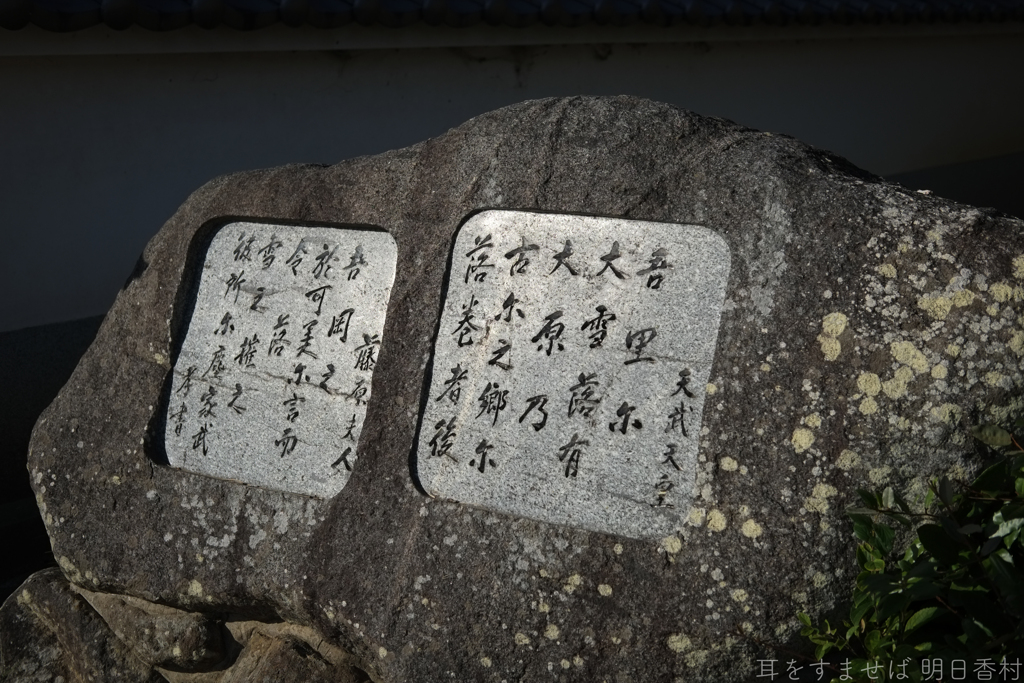 天武天皇
吾里尓
大雪落有
大原乃
古尓之郷尓
落巻者後
藤原夫人
吾岡之
於可美尓言而
令落
雪之摧之
彼所尓塵家武
書
耳をすませば 明日香村